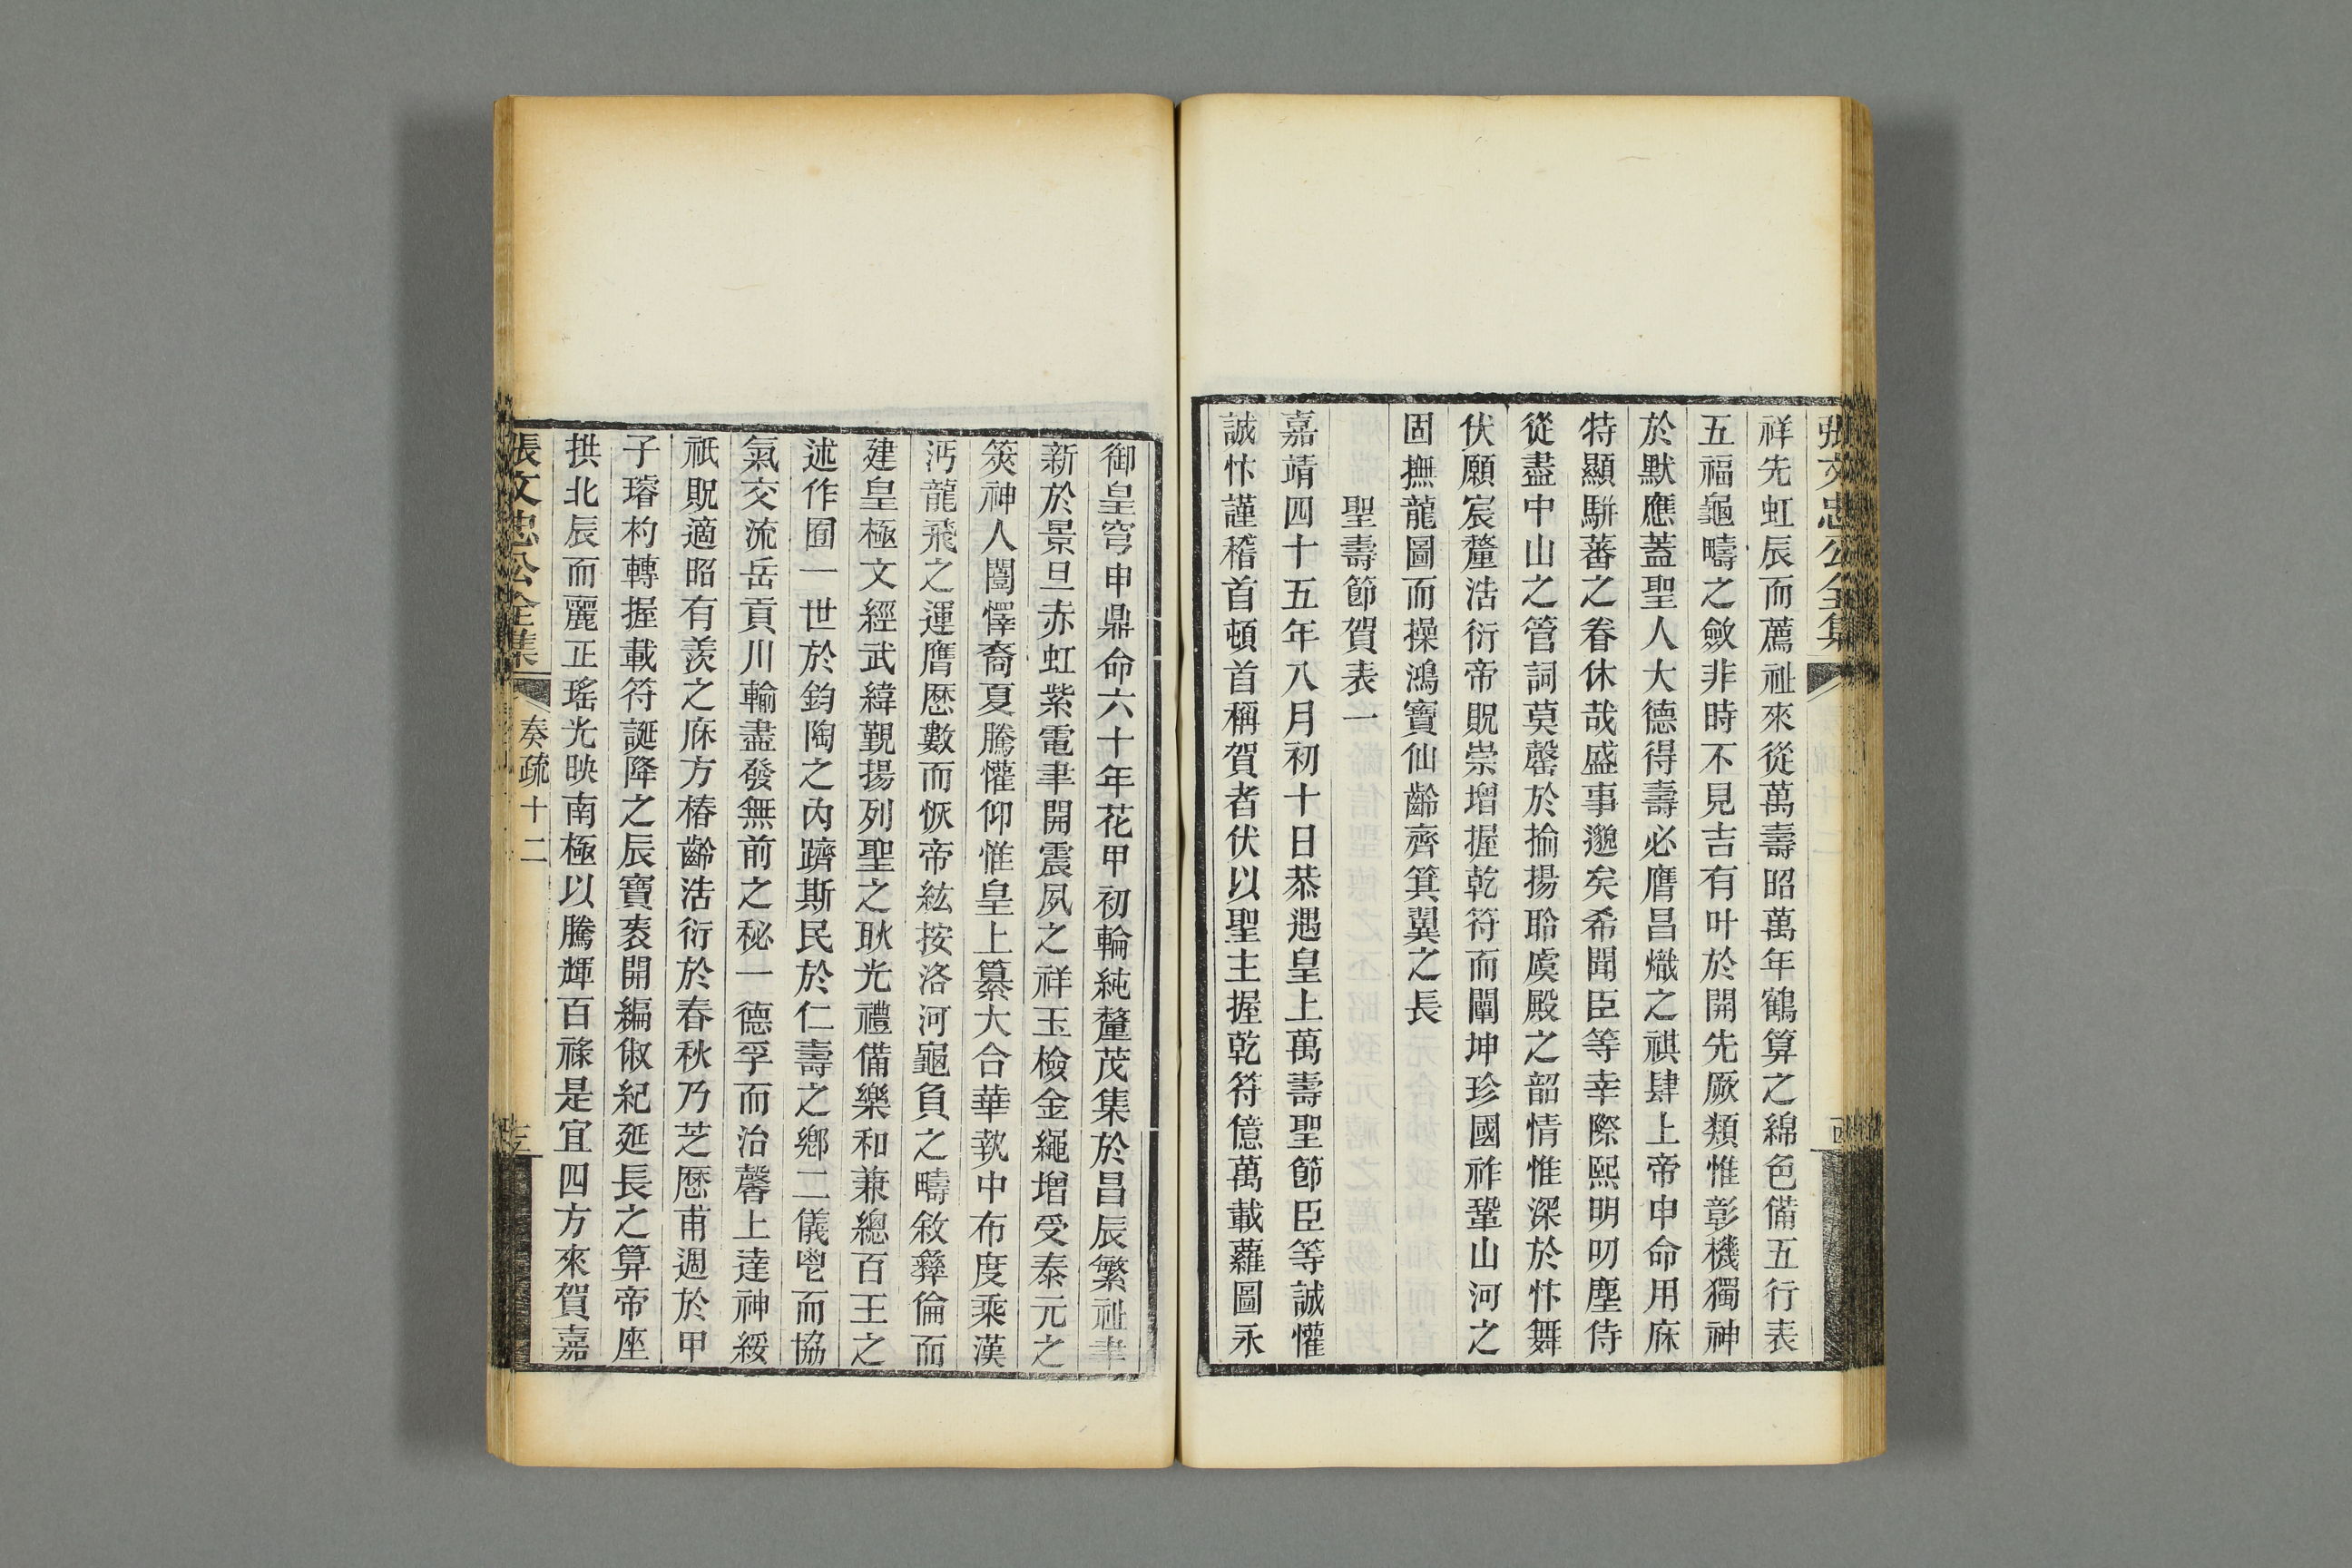 張文忠公全集
祥先虹辰而薦祉來從萬壽昭萬年鶴算之綿色備五行表
五福龜疇之斂非時不見吉有叶於開先厥類惟彰機獨神
於默應蓋聖人大德得壽必膺昌熾之祺肆上帝申命用庥
特顯駢蕃之眷休哉盛事邈矣希聞臣等幸際熙明叨塵侍
從盡中山之管詞莫罄於揄揚聆虞殿之韶情惟深於忭舞
伏願宸釐浩衍帝貺崇增握乾符而闡坤珍國祚鞏山河之
固撫龍圖而操鴻寶仙齡齊箕翼之長
聖壽節賀表一
嘉靖四十五年八月初十日恭遇皇上萬壽聖節臣等誠懽
誠忭謹稽首頓首稱賀者伏以聖主握乾符億萬載蘿圖永
御皇穹申鼎命六十年花甲初輪純釐茂集於昌辰繁祉聿
新於景旦赤虹紫電聿開震夙之祥玉檢金繩增受泰元之
筴神人闓懌裔夏騰懽仰惟皇上纂大合華執中布度乘漢
沔龍飛之運膺歷數而恢帝紘按洛河龜負之疇敘彝倫而
建皇極文經武緯覲揚列聖之耿光禮備樂和兼總百王之
述作囿一世於鈞陶之內躋斯民於仁壽之鄉二儀鬯而協
氣交流岳貢川輸盡發無前之秘一德孚而治馨上達神綏
祇貺適昭有羨之庥方椿齡浩衍於春秋乃芝歷甫週於甲
子璿杓轉握載符誕降之辰寶袠開編俶紀延長之算帝座
拱北辰而麗正瑤光映南極以騰輝百祿是宜四方來賀嘉
張文忠公全集 奏疏十二